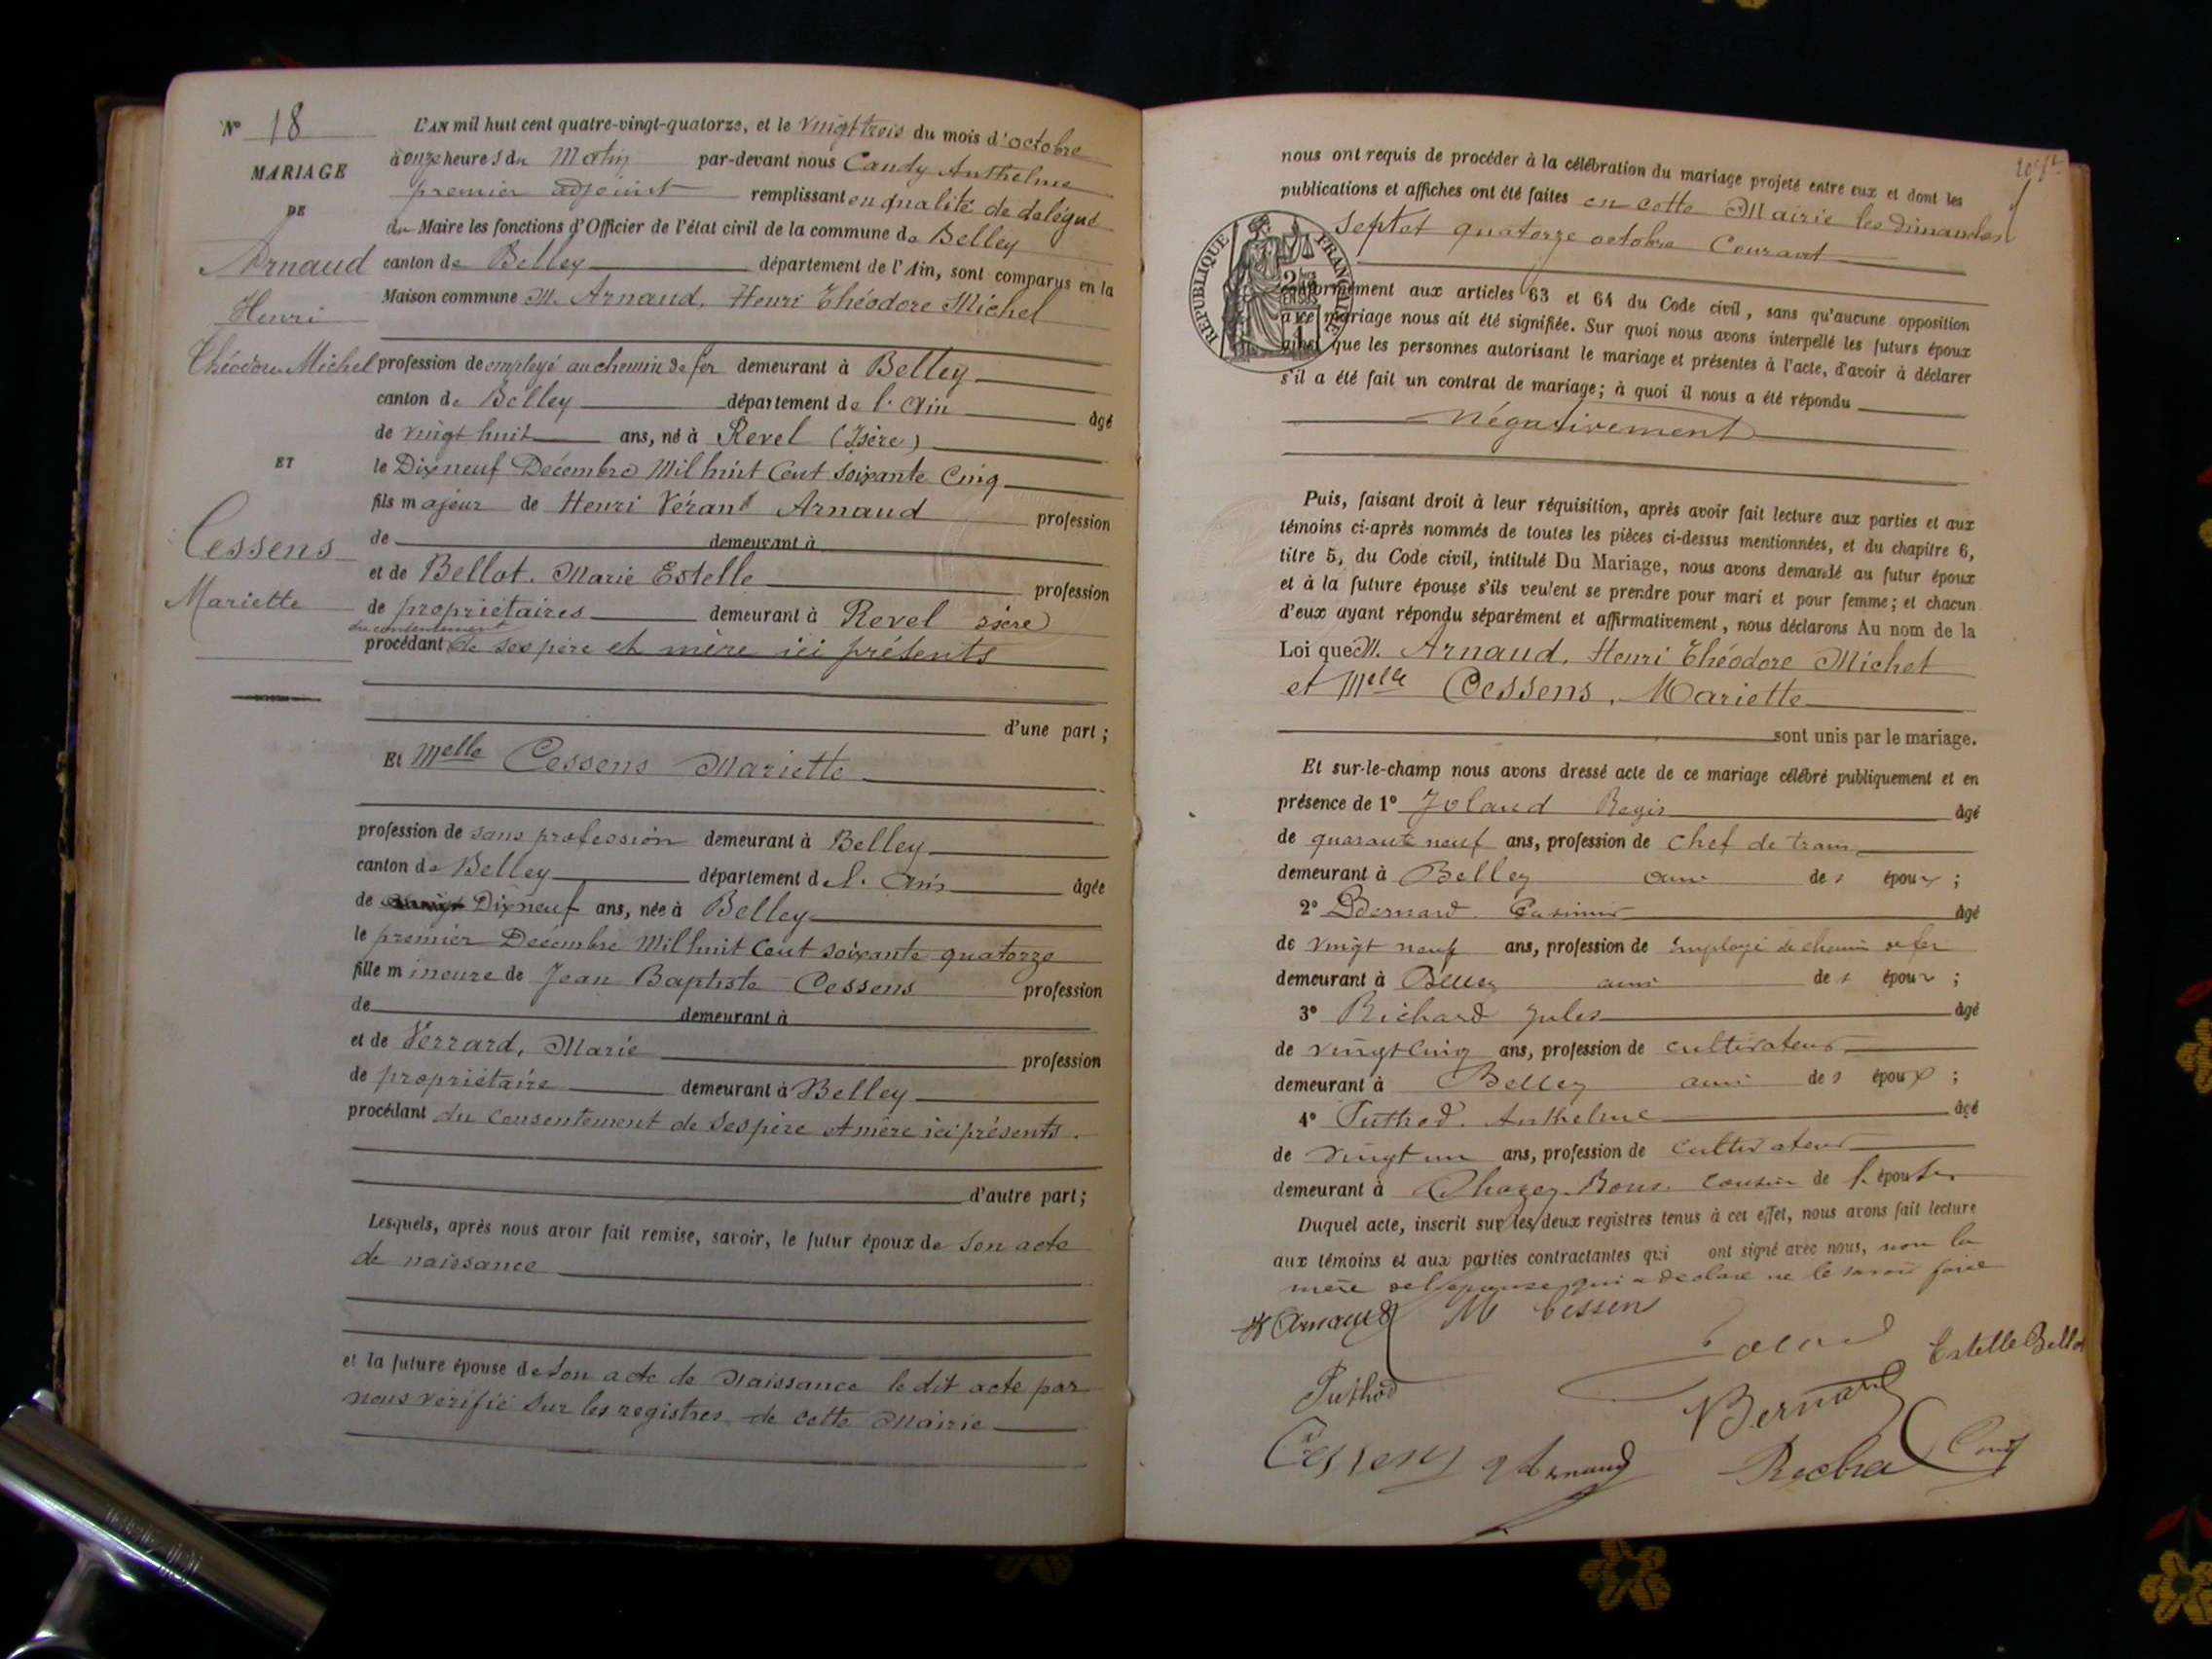 N° 18
MARIAGE
DE
Arnaud
Henri
Théodore Michel
ET
Cessens
Mariette
L'AN mil huit cent quatre-vingt-quatorze, et le vingt trois du mois d'octobre
à onze heures du Matin par-devant nous Candy Anthelme
premier adjoint remplissant en qualité de délégué
du Maire les fonctions d'Officier de l'état civil de la commune de Belley
canton de Belley département de l'Ain, sont comparus en la
Maison commune M. Arnaud, Henri Théodore Michel
profession de employé au chemin de fer demeurant à Belley
canton de Belley département de l'Ain âgé
de vingt huit ans, né à Revel (Isère)
le Dix neuf Décembre Mil huit Cent Soixante Cinq
fils majeur de Henri Véran Arnaud profession
de demeurant à
et de Bellot. Marie Estelle profession
de propriétaires demeurant à Revel Isère)
du consentement
procédant de ses père et mère ici présents
d'une part ;
Et Melle Cessens Mariette
profession de sans profession demeurant à Belley
canton de Belley département de l'Ain âgée
de Dix neuf ans, née à Belley
le premier Décembre Mil huit Cent soixante quatorze
fille mineure de Jean Baptiste Cessens profession
de demeurant à
et de Verrard, Marie profession
de propriétaire demeurant à Belley
procédant du consentement de ses père et mère ici présents.
d'autre part ;
Lesquels, après nous avoir fait remise, savoir, le futur époux de son acte
de naissance
et la future épouse de son acte de Naissance le dit acte par
nous vérifié sur les registres de cette Mairie
nous ont requis de procéder à la célébration du mariage projeté entre eux et dont les
publications et affiches ont été faites en cette Mairie les dimanches
sept et quatorze octobre Courant
RÉPUBLIQUE FRANÇAISE
conformément aux articles 63 et 64 du Code civil, sans qu'aucune opposition
à ce mariage nous ait été signifiée. Sur quoi nous avons interpellé les futurs époux
ainsi que les personnes autorisant le mariage et présentes à l'acte, d'avoir à déclarer
s'il a été fait un contrat de mariage; à quoi il nous a été répondu
négativement
Puis, faisant droit à leur réquisition, après avoir fait lecture aux parties et aux
témoins ci-après nommés de toutes les pièces ci-dessus mentionnées, et du chapitre 6,
titre 5, du Code civil, intitulé Du Mariage, nous avons demandé au futur époux
et à la future épouse s'ils veulent se prendre pour mari et pour femme; et chacun
d'eux ayant répondu séparément et affirmativement, nous déclarons Au nom de la
Loi que M. Arnaud, Henri Théodore Michel
et Melle Cessens, Mariette
sont unis par le mariage.
Et sur-le-champ nous avons dressé acte de ce mariage célébré publiquement et en
présence de 1° Joland Regis âgé
de quarante neuf ans, profession de chef de train
demeurant à Belley ami des époux ;
2° Bernard. Casimir âgé
de vingt neuf ans, profession de employé de chemin de fer
demeurant à Belley ami des époux ;
3° Richard Jules âgé
de vingt cinq ans, profession de cultivateur
demeurant à Belley ami des époux ;
4° Puthod. Anthelme âgé
de vingt un ans, profession de cultivateur
demeurant à Chazey-Bons. cousin de l'épouse
Duquel acte, inscrit sur les deux registres tenus à cet effet, nous avons fait lecture
aux témoins et aux parties contractantes qui ont signé avec nous, non la
mère de l'épouse qui a déclaré ne le savoir faire
Arnaud M Cessens
Estelle Bellot
Puthod
Bernard
Cessens Arnaud